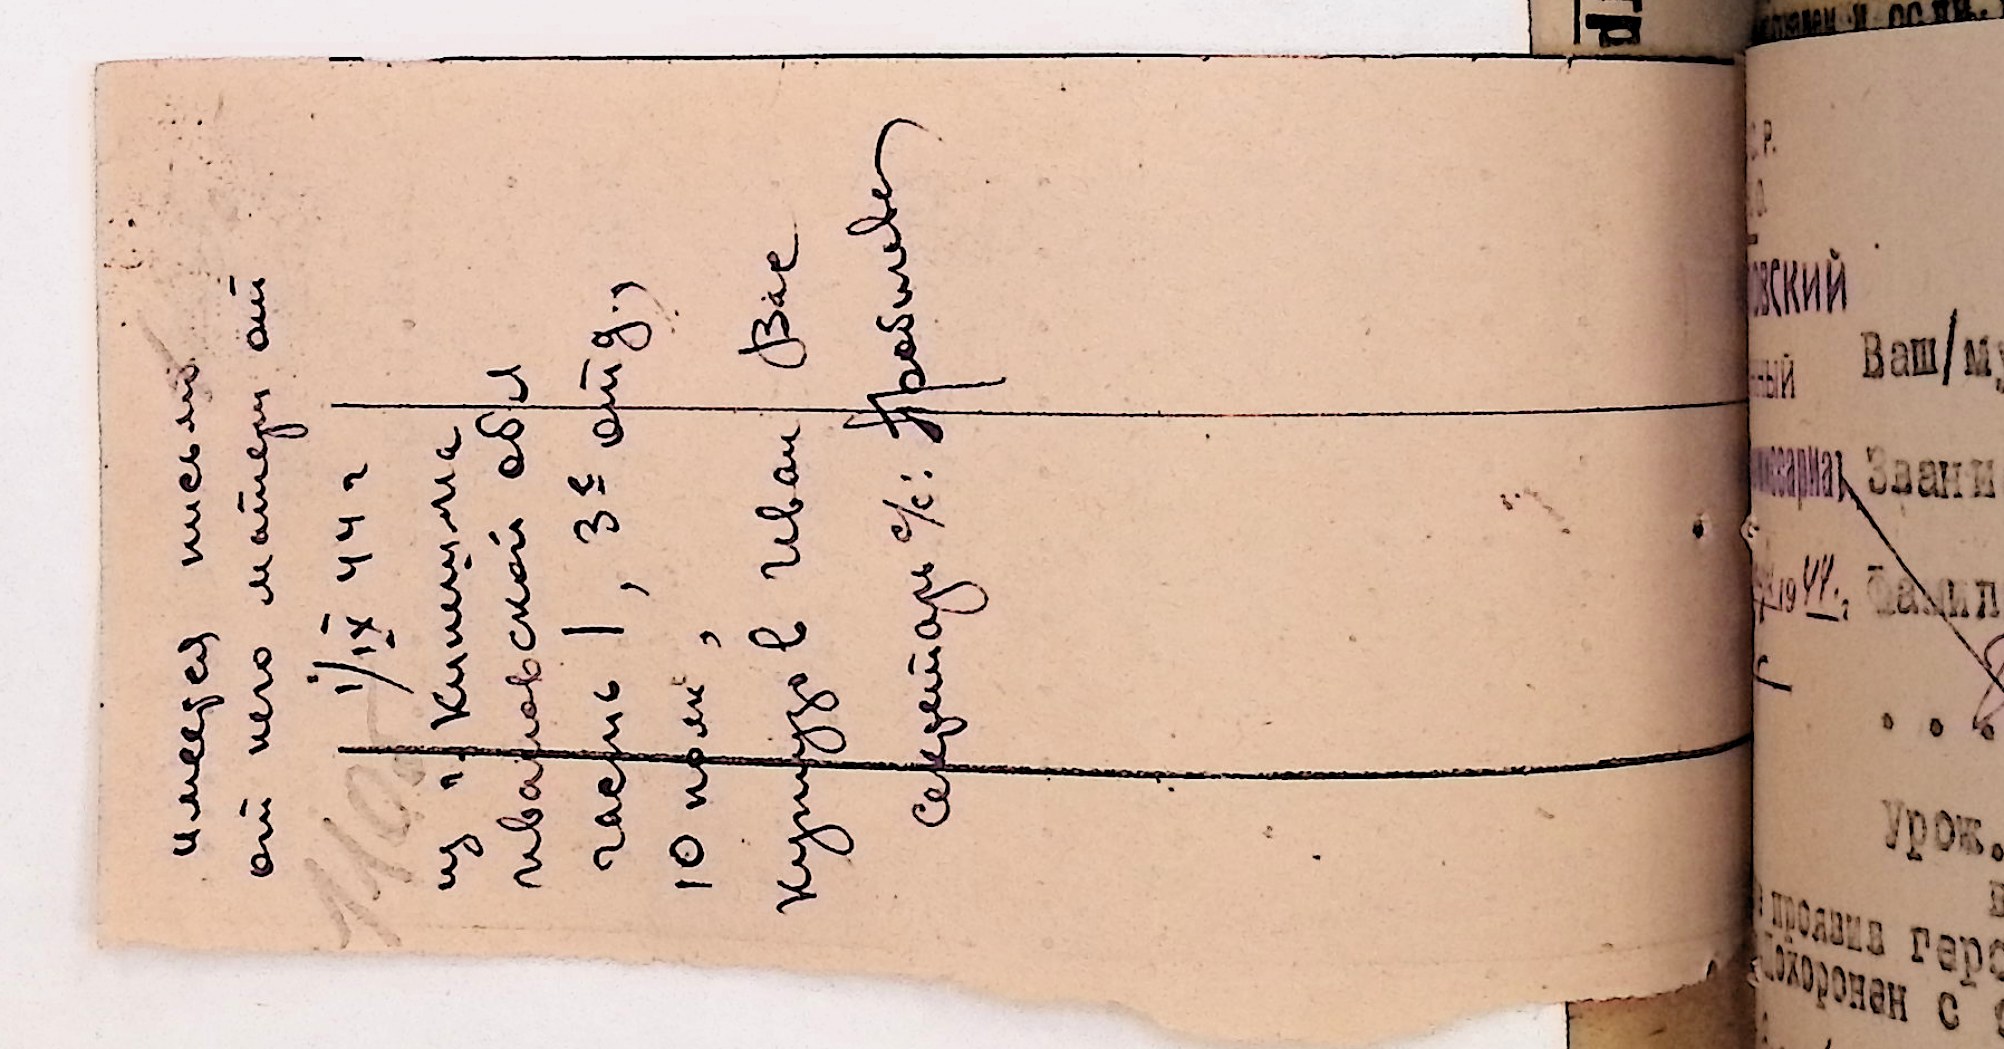 имеедся письмо
от него матери от
1/IX 44 г
из г. Кинешма
ивановской обл
часть 1, 3е отд.,
10 полк,
Кунизов Иван Вас
Секретарь с/с:
С.Р.
овский
ный
миссариат
19 44 г
Ваш/му
Звани
Фамил
. . .
Урож.
проявив геро
похоронен с